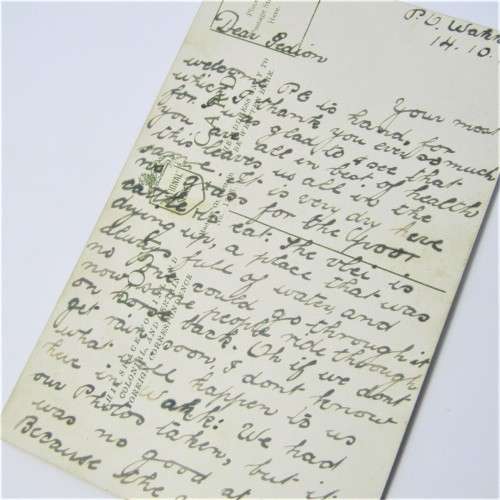 P.O.
14.10.
Dear
Your
welcome P.C is hand, for
which I thank you ever so much
for. glad to see that
you are all in best of health
this leaves us all in the
same. It is very dry here
no grass for the poor
cattle to eat. The vlei is
drying up, a place that was
always full of water, and
no one could go through it
now some people ride through
on horse back. Oh if we dont
get rain soon, I dont know
what will happen to us
here in We had
our Photos taken, but it
was no good at
Because she
Please
Here.
POST CARD
THIS SPACE
COLONIAL AND
FOREIGN CORRESPONDENCE